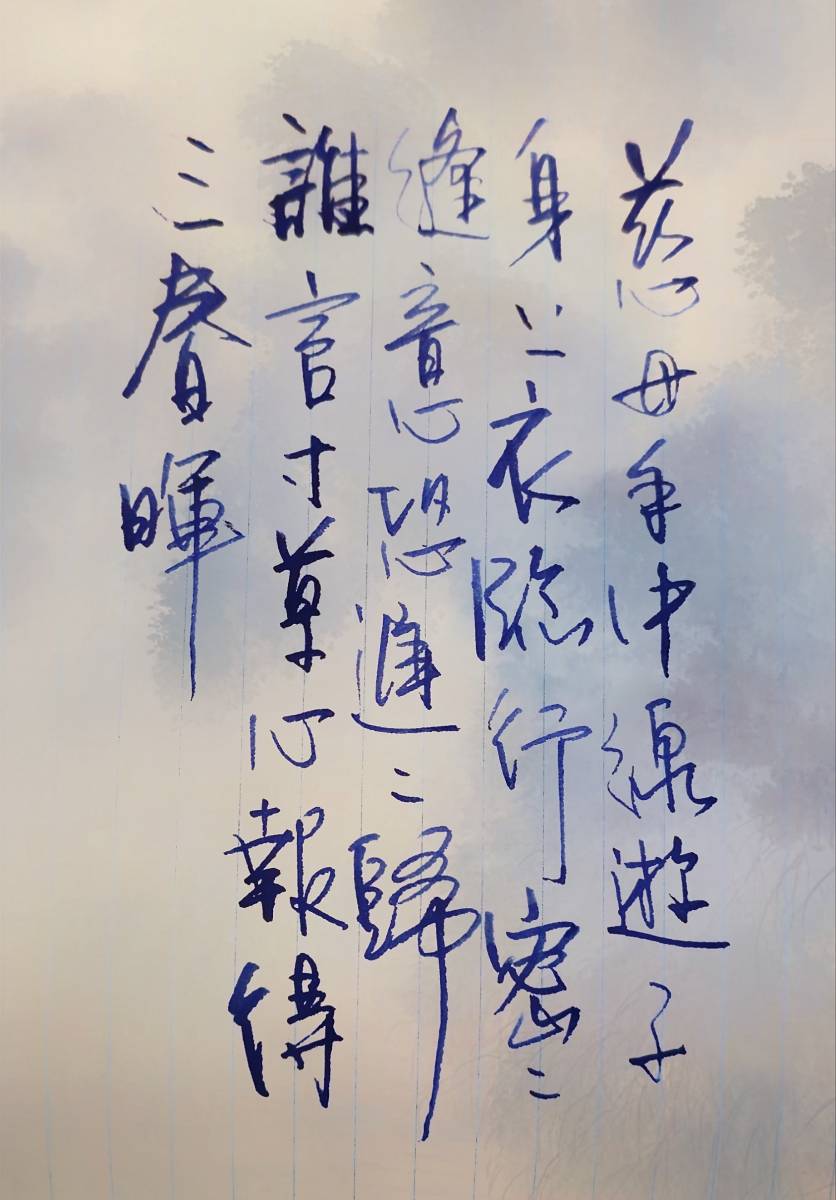 慈母手中線遊子
身上衣臨行密〻
縫意恐遲〻歸
誰言寸草心報得
三春暉